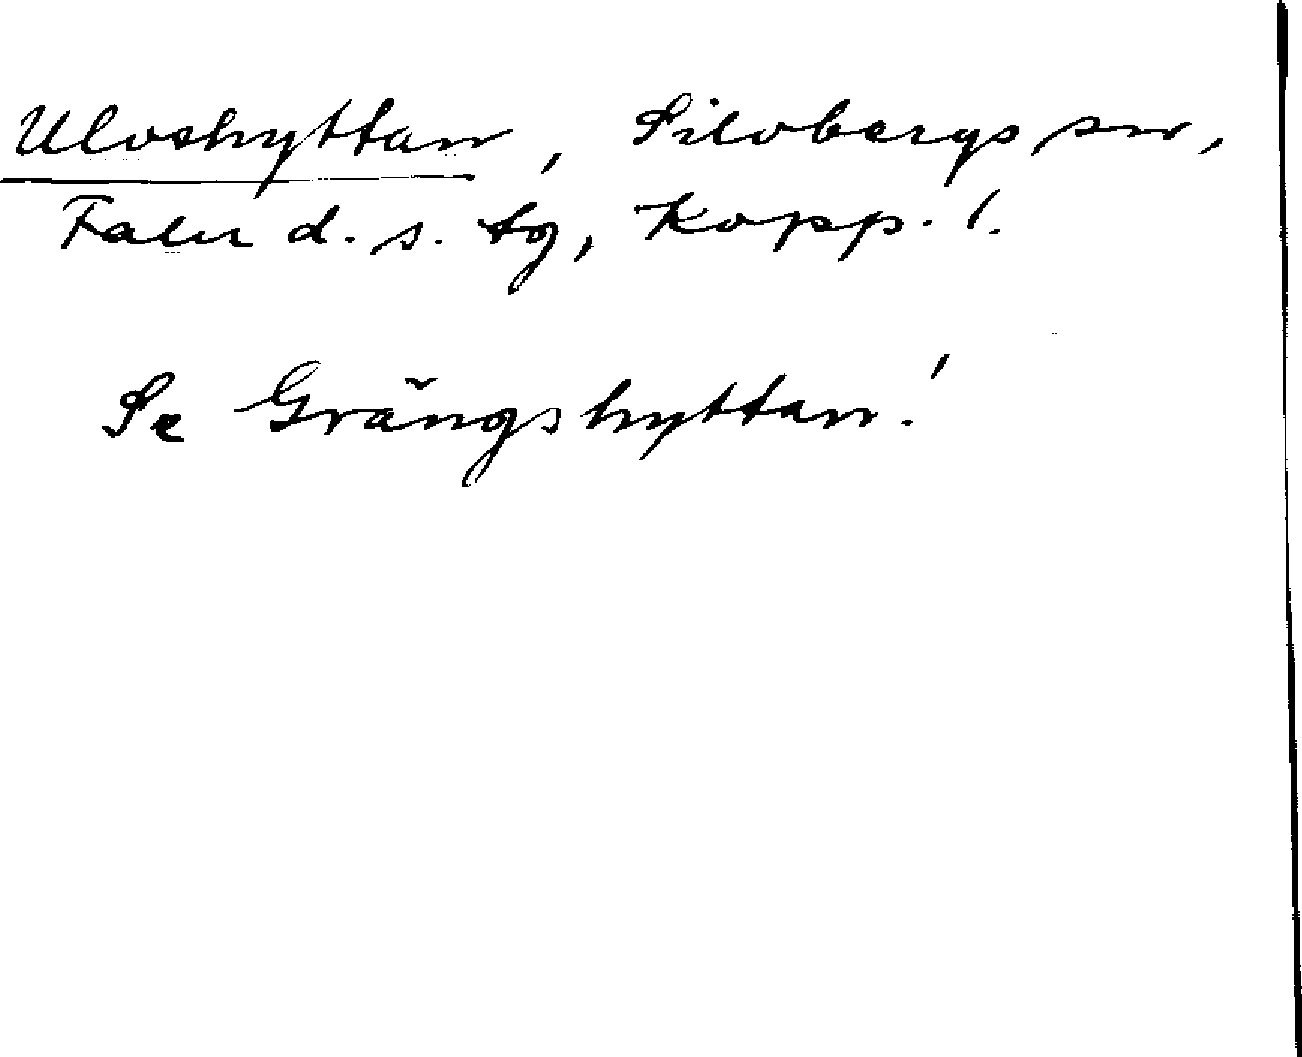 Ulvshyttan, Silvbergs sn,
Falu d. s. tg, Kopp. l.
Se Grängshyttan!